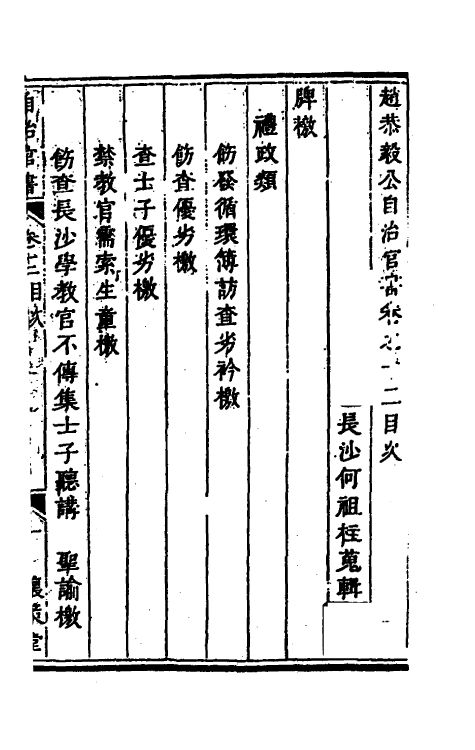 趙恭毅公自治官書卷之十二目次
長沙何祖柱蒐輯
牌檄
禮政類
飭發循環簿訪查劣衿檄
飭查優劣檄
查士子優劣檄
禁教官需索生童檄
飭查長沙學教官不傳集士子聽講　聖諭檄
自治官書
卷十二目次
一
懷策堂